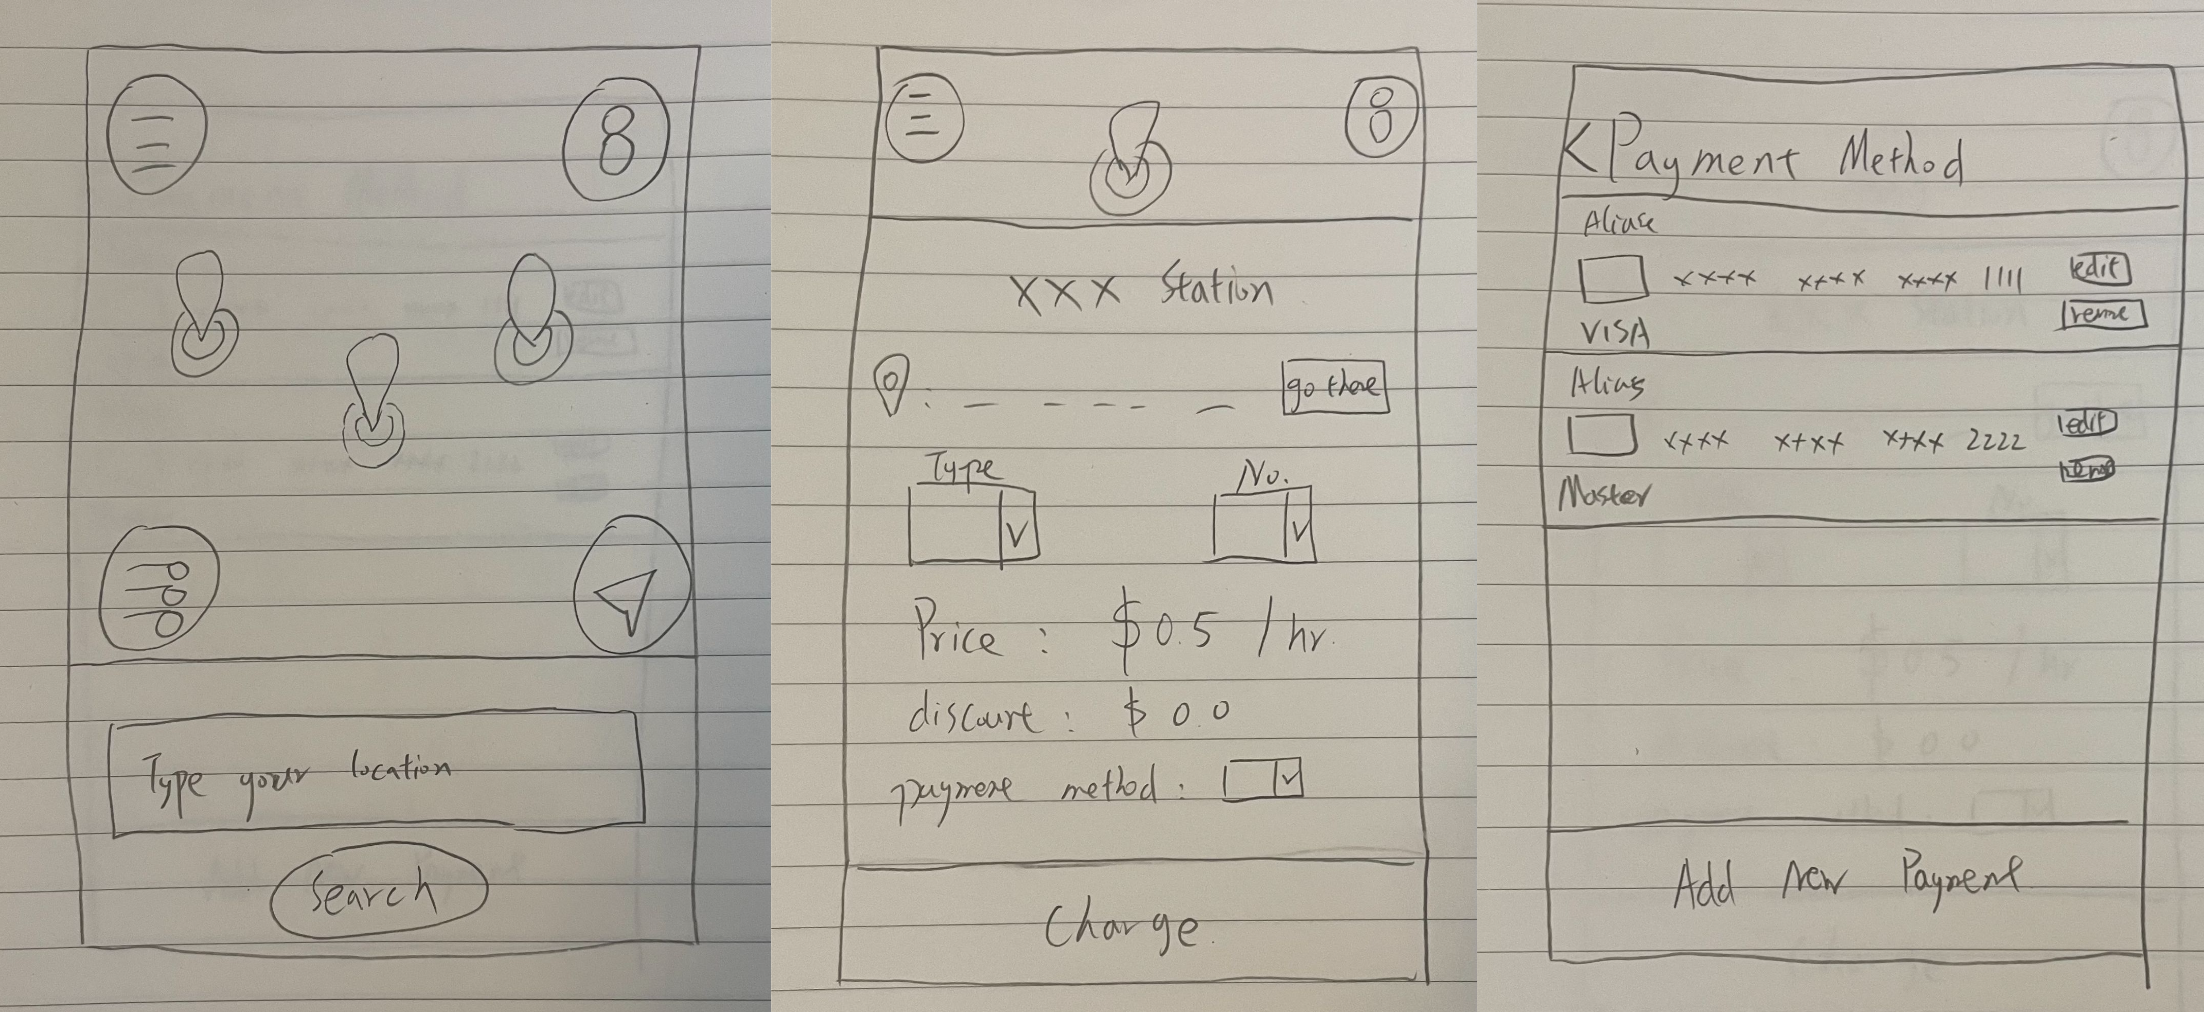 Type your location
Search
XXX Station
go there
Type
No.
Price : $ 0.5 / hr.
discount : $ 0.0
payment method :
Charge.
< Payment Method
Aliase
xxxx xxxx xxxx 1111
edit
VISA
Alias
xxxx xxxx xxxx 2222
edit
Master
Add New Payment